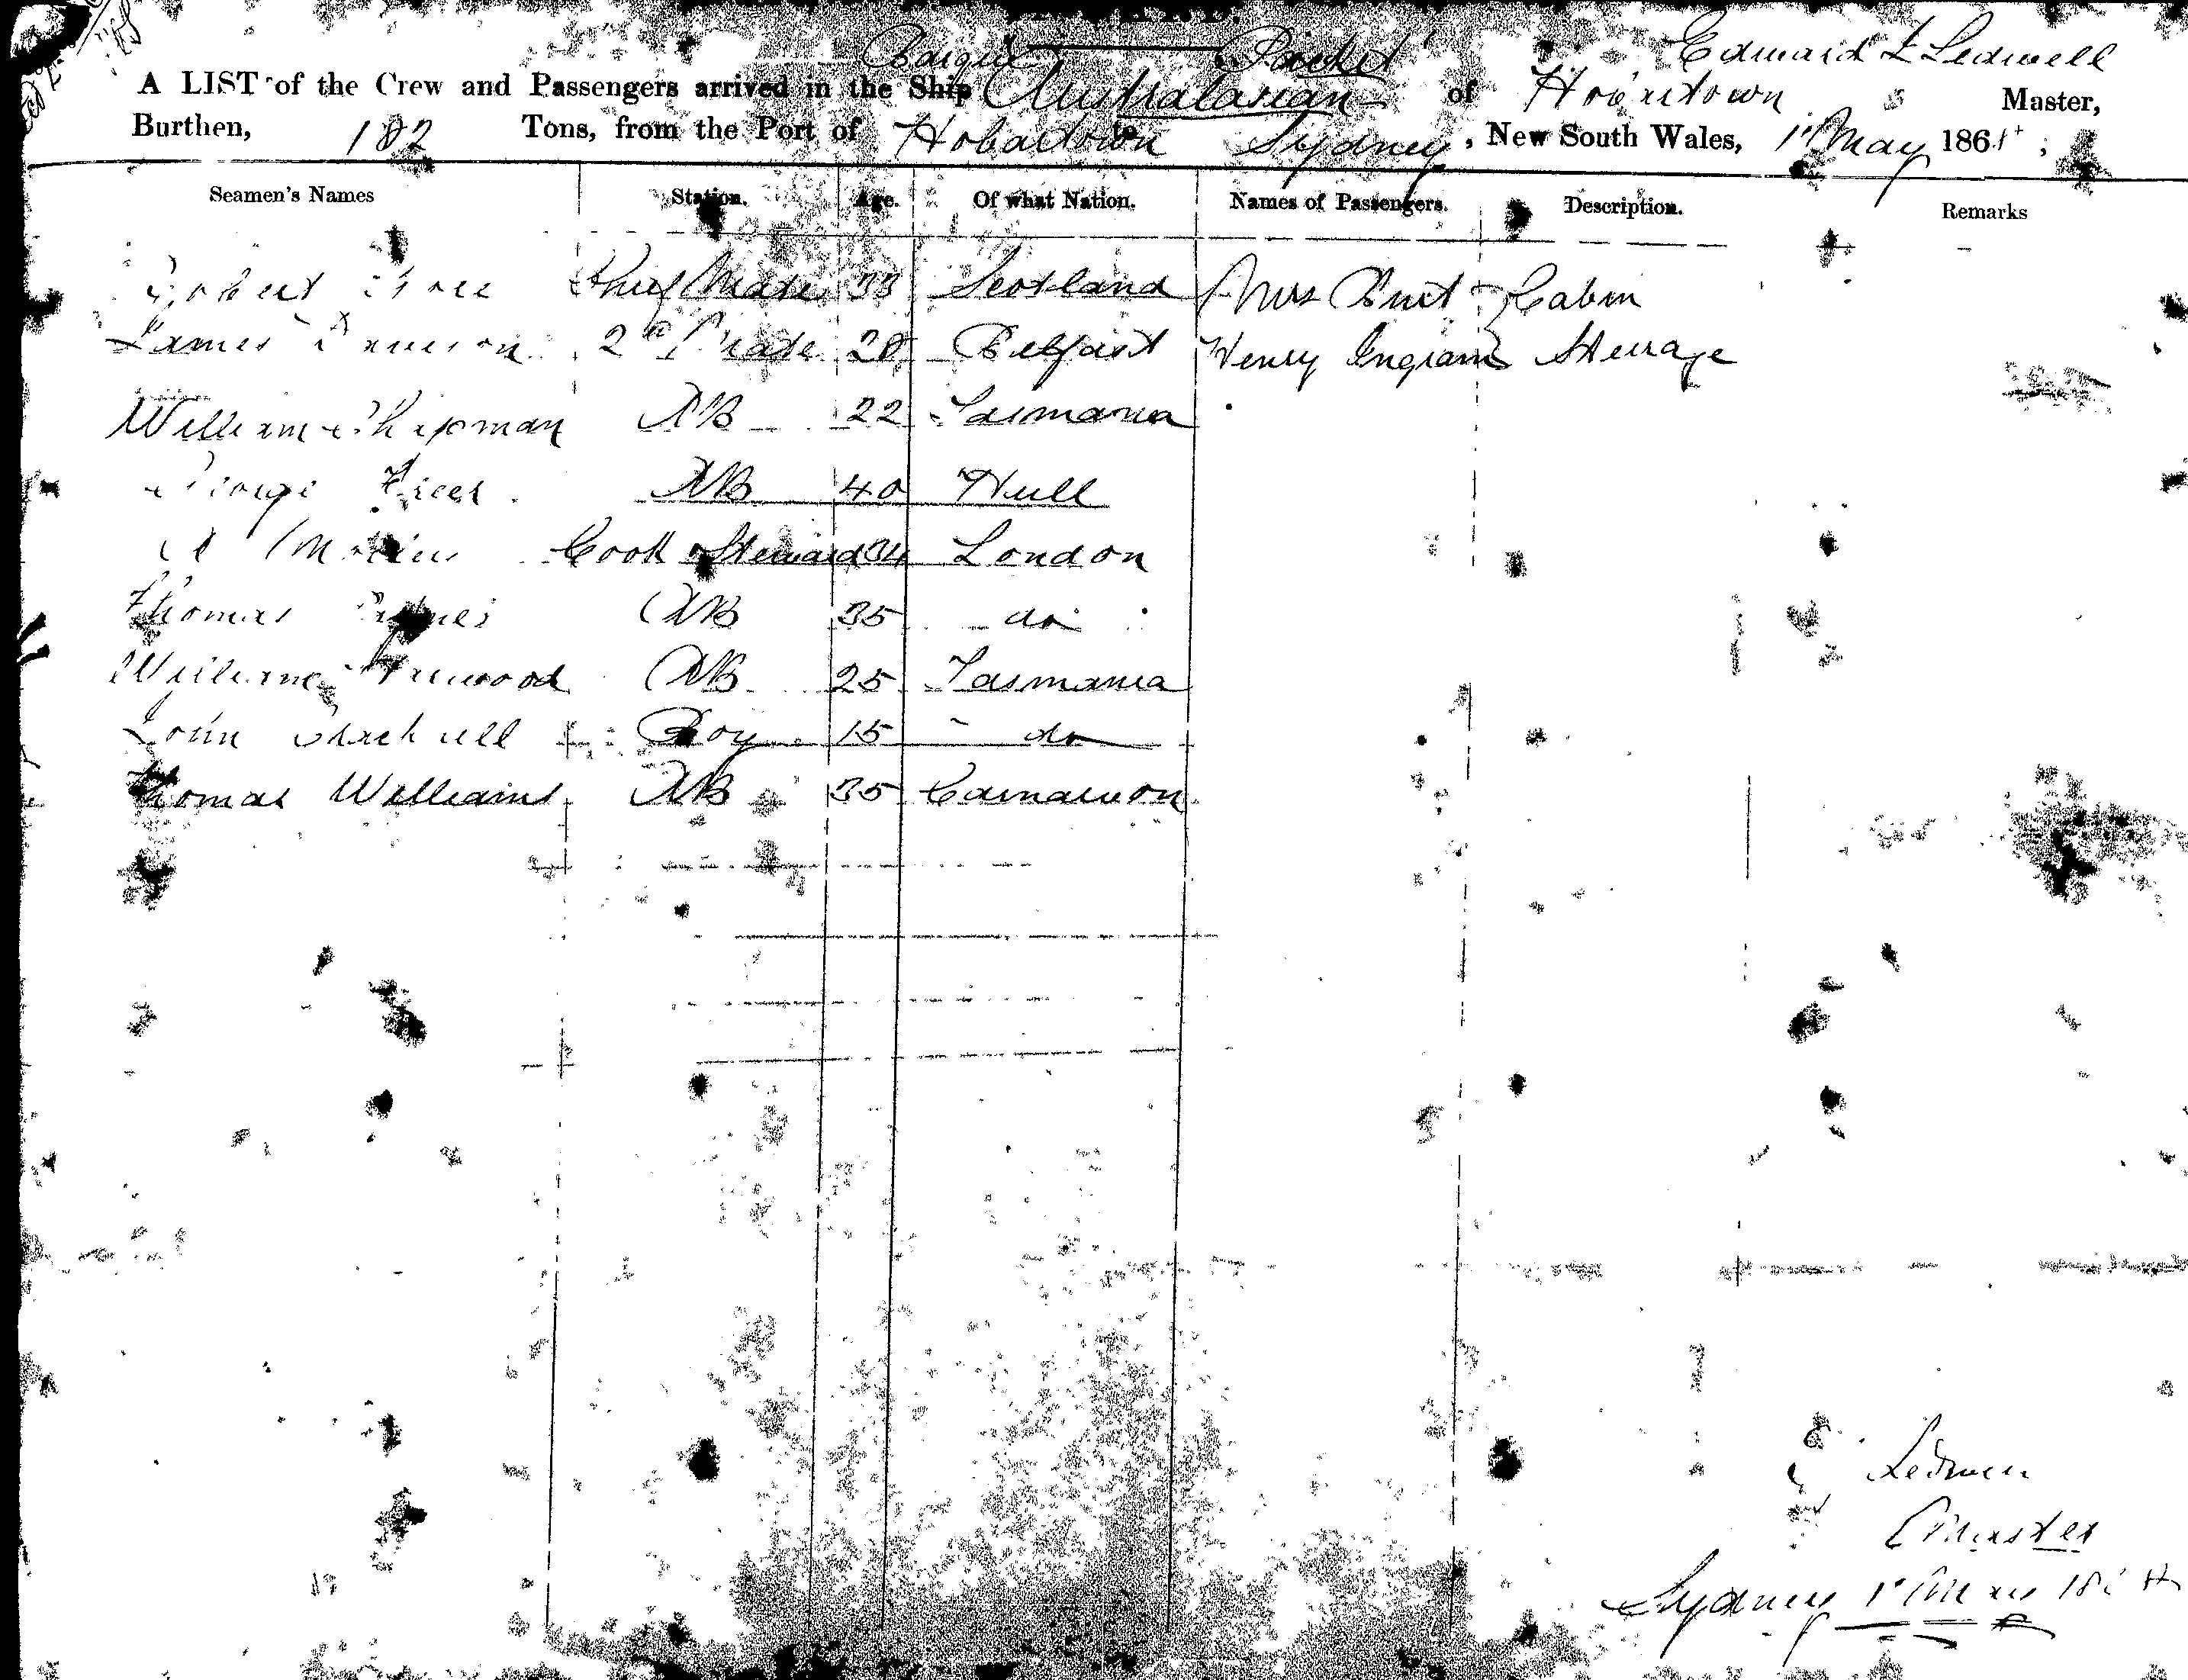 Barque Packet Edward F Ledwell
A LIST of the Crew and Passengers arrived in the Ship Australasian of Hobartown Master,
Burthen, 182 Tons, from the Port of Hobartown to Sydney, New South Wales, 1st May 1864
Seamen's Names Station. Age. Of what Nation. Names of Passengers. Description. Remarks
Robert Chief Mate 33 Scotland Mrs Burt Cabin
James 2nd Mate 28 Belfast Henry Ingram Steerage
William Chapman AB 22 Tasmania
George AB 40 Hull
Cook & Steward 34 London
Thomas AB 35 do
William AB 25 Tasmania
John Boy 15 do
Thomas Williams AB 35 Carnarvon
Ledwell
Master
Sydney 1st May 1864